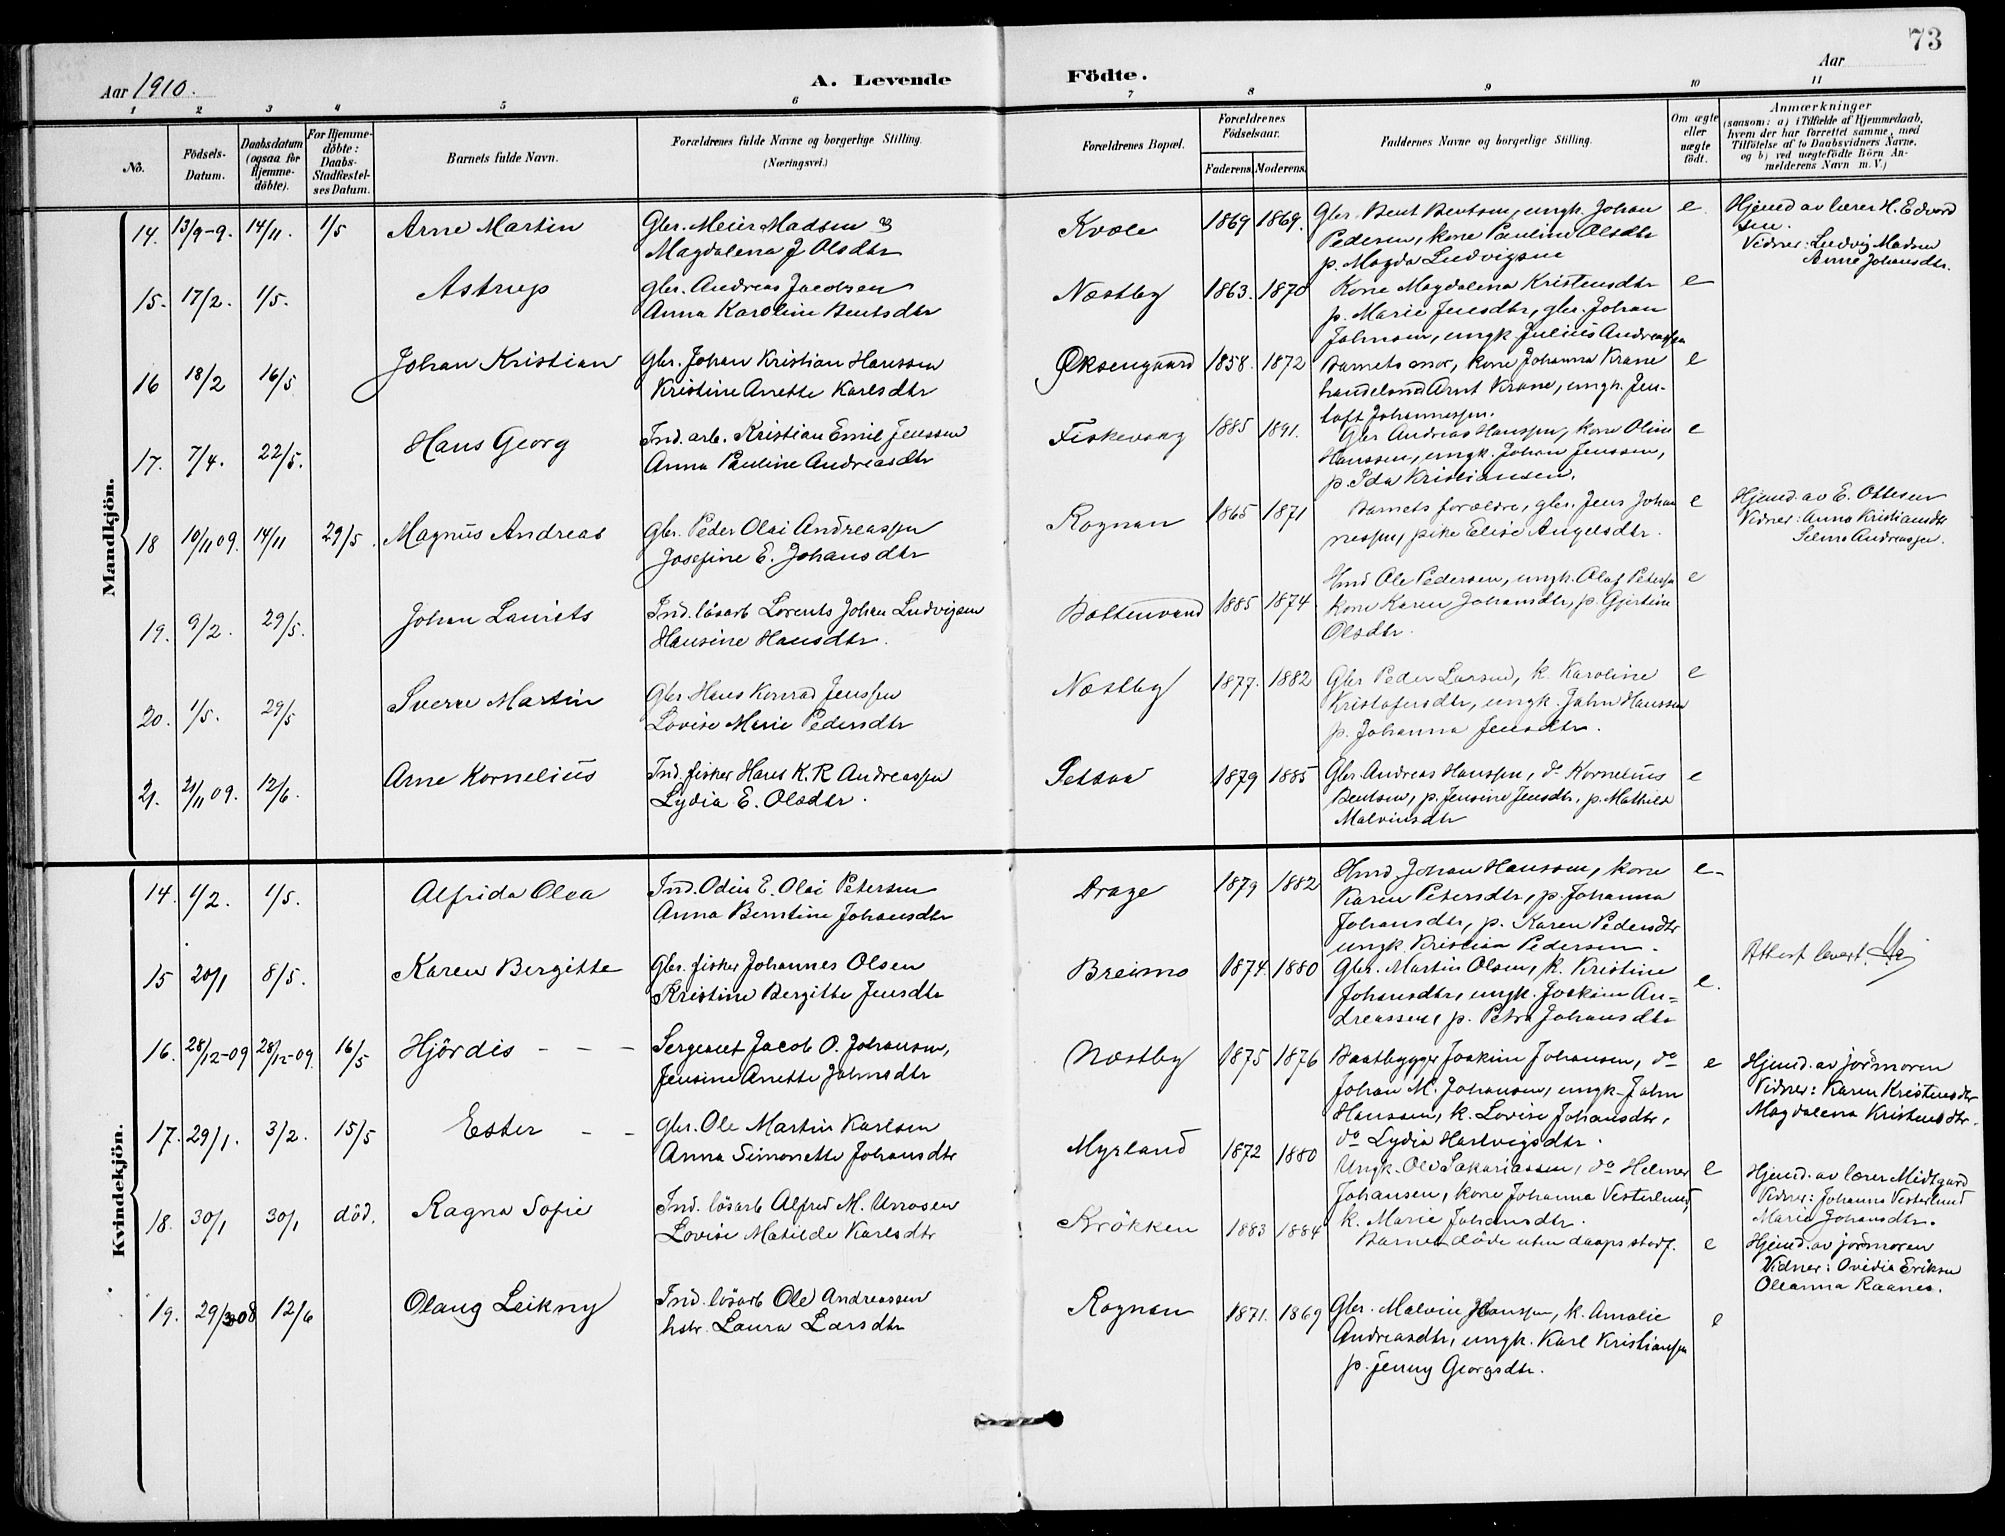 73
Aar 1910.
A. Levende Födte.
Aar
1 2 3 4 5 6 7 8 9 10 11
No.
Födsels-Datum.
Daabsdatum (ogsaa for Hjemme-döbte).
For Hjemme-döbte: Daabs-Stadfæstel-ses Datum.
Barnets fulde Navn.
Forældrenes fulde Navne og borgerlige Stilling.
(Næringsvei.)
Forældrenes Bopæl.
Forældrenes Födselsaar.
Faderens. Moderens.
Faddernes Navne og borgerlige Stilling.
Om ægte eller uægte födt.
Anmærkninger
(saasom: a) i Tilfælde af Hjemmedaab,
hvem der har forrettet samme, med
Tilföielse af to Daabsvidners Navne,
og b) ved uægtefödte Börn An-
melderens Navn m. V.)
Mandkjön.
14. 13/9-9. 14/11. 1/5 Arne Martin
Gbr. Meier Madsen og
Magdalena J Olsdtr
Kvæle 1869 1869.
Gbr. Bent Bentsen, ungk. Johan
Pedersen, kone Pauline Olsdtr
p. Magda Ludvigsen
e.
Hjemd av lærer H. Edvard
sen.
Vidner: Ludvig Madsen
Anne Johansdtr.
15. 17/2. 1/5. Astrup
gbr. Andreas Jacobsen
Anna Karoline Bentsdtr
Næstby 1863. 1870
Kone Magdalena Kristensdtr
p. Marie Jensdtr, gbr. Johan
Johnsen, ungk Julius Andreassen
e
16 18/2 16/5 Johan Kristian
gbr. Johan Kristian Hanssen
Kristine Anette Karlsdtr
Øksengaard 1858. 1872
Barnets mor, kone Johanna Krane
handelsmd Arnt Krane, ungk. Jen-
toft Johannessen.
e
17. 7/4. 22/5. Hans Georg
Ind. arb. Kristian Emil Jenssen
Anna Pauline Andreasdtr
Fiskevaag 1885 1891.
Gbr Andreas Hanssen, kone Oline
Hanssen, ungk. Johan Jenssen,
p. Ida Kristiansen.
e
18 10/11 09. 14/11 29/5. Magnus Andreas
gbr. Peder Olai Andreassen
Josefine E. Johansdtr
Rognan 1865 1871
Barnets forældre, gbr. Jens Johan
nessen, pike Elise Angelsdtr.
e
Hjemd. av E. Ottesen
Vidner: Anna Kristiansdtr
Selma Andreassen.
19. 9/2. 29/5. Johan Laurits
Ind. lösarb Lorents Johan Ludvigsen
Hansine Hansdtr.
Bottenvand 1885 1874
Hmd Ole Pedersen, ungk. Olaf Petersen
kone Karen Johansdtr, p. Gjertine
Olsdtr.
e
20. 1/5. 29/5 Sverre Martin
Gbr Hans Konrad Jenssen
Lovise Marie Pedersdtr
Næstby 1877. 1882
Gbr Peder Larsen, k. Karoline
Kristofersdtr, ungk. John Hanssen
p. Johanna Jensdtr.
e
21. 21/11 09. 12/6. Arne Kornelius
Ind. fisker Hans K. R Andreassen
Lydia E. Olsdtr.
Setsaa 1879 1885
Gbr. Andreas Hanssen, do Kornelius
Bentsen, p. Jensine Jensdtr, p. Mathilde
Malvinsdtr
e
Kvindekjön.
14. 1/2. 1/5. Alfrida Olea
Ind. Odin E. Olai Petersen
Anna Berntine Johansdtr
Drage 1879 1882
Hmd Johan Hanssen, kone
Karen Petersdtr, p. Johanna
Johansdtr, p. Karen Pedersdtr
ungk Kristian Pedersen.
e-
15 20/1 8/5. Karen Bergitte
Gbr. fisker Johannes Olsen
Kristine Bergitte Jensdtr
Breimo 1874. 1880
Gbr. Martin Olsen, k. Kristine
Johansdtr, ungk. Joakim An=
dreassen, p. Petra Johansdtr
e.
Attest levert.
16. 28/12-09 28/12-09. 16/5 Hjördis - - -
Sergeant Jacob O. Johansen,
Jensine Anette Johnsdtr
Næstby 1875 1876
Baatbygger Joakim Johansen, do
Johan M. Johansen, ungk. John
Hanssen, k. Lovise Johansdtr,
do Lydia Hartvigsdtr.
e
Hjemd. av jormoren
Vidner: Karen Kristensdtr
Magdalena Kristensdtr.
17. 29/1. 3/2. 15/5 Ester - -
gbr. Ole Martin Karlsen
Anna Simonette Johansdtr
Myrland 1872 1880
Ungk. Ole Sakariassen, do Helmer
Johansen, kone Johanna Vesterlund,
k. Marie Johansdtr.
e
Hjemd. av lærer Midtgaard
Vidner: Johanna Vesterlund
Marie Johansdtr.
18. 30/1 30/1 död. Ragna Sofie
Ind. lösarb Alfred M.
Lovise Matilde Karlsdtr
Krökken 1883 1884
Barnet döde uten daaps stadf.
e
Hjemd. av jormoren
Vidner: Ovidia Eriksen
Oleanna Raanes.
19. 29/3 08 12/6 Olaug Leikny
Ind. lösarb Ole Andreassen
hstr. Laura Larsdtr
Rognan 1871. 1869
Gbr. Malvin Hanssen, k. Amalie
Andreasdtr, ungk. Karl Kristianssen
p. Jenny Georgsdtr.
e